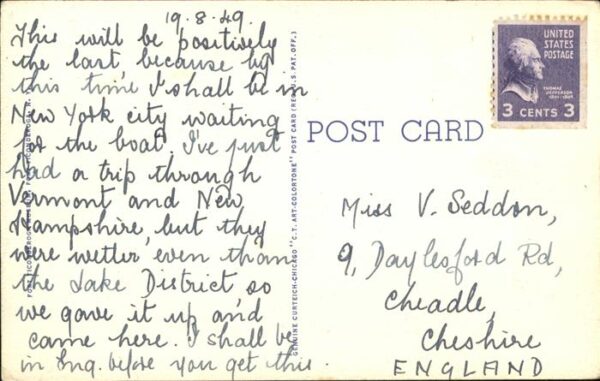 19.8.49.
This will be positively
the last because by
this time I shall be in
New York city waiting
for the boat. I've just
had a trip through
Vermont and New
Hampshire, but they
were wetter even than
the Lake District so
we gave it up and
came here. I shall be
in Eng. before you get this.
GENUINE CURTEICH-CHICAGO "C.T. ART-COLORTONE" POST CARD (REG. U.S. PAT. OFF.)
POST CARD
UNITED
STATES
POSTAGE
THOMAS
JEFFERSON
1801-1809
3 CENTS 3
Miss V. Seddon,
9, Daylesford Rd,
Cheadle,
Cheshire
ENGLAND